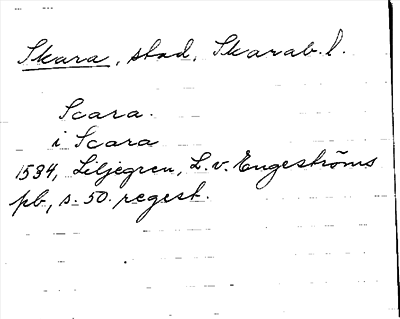 Skara, stad, Skarab. l.
Scara.
i Scara
1534, Liljegren, L. v. Engeströms
pb, s. 50. regest.